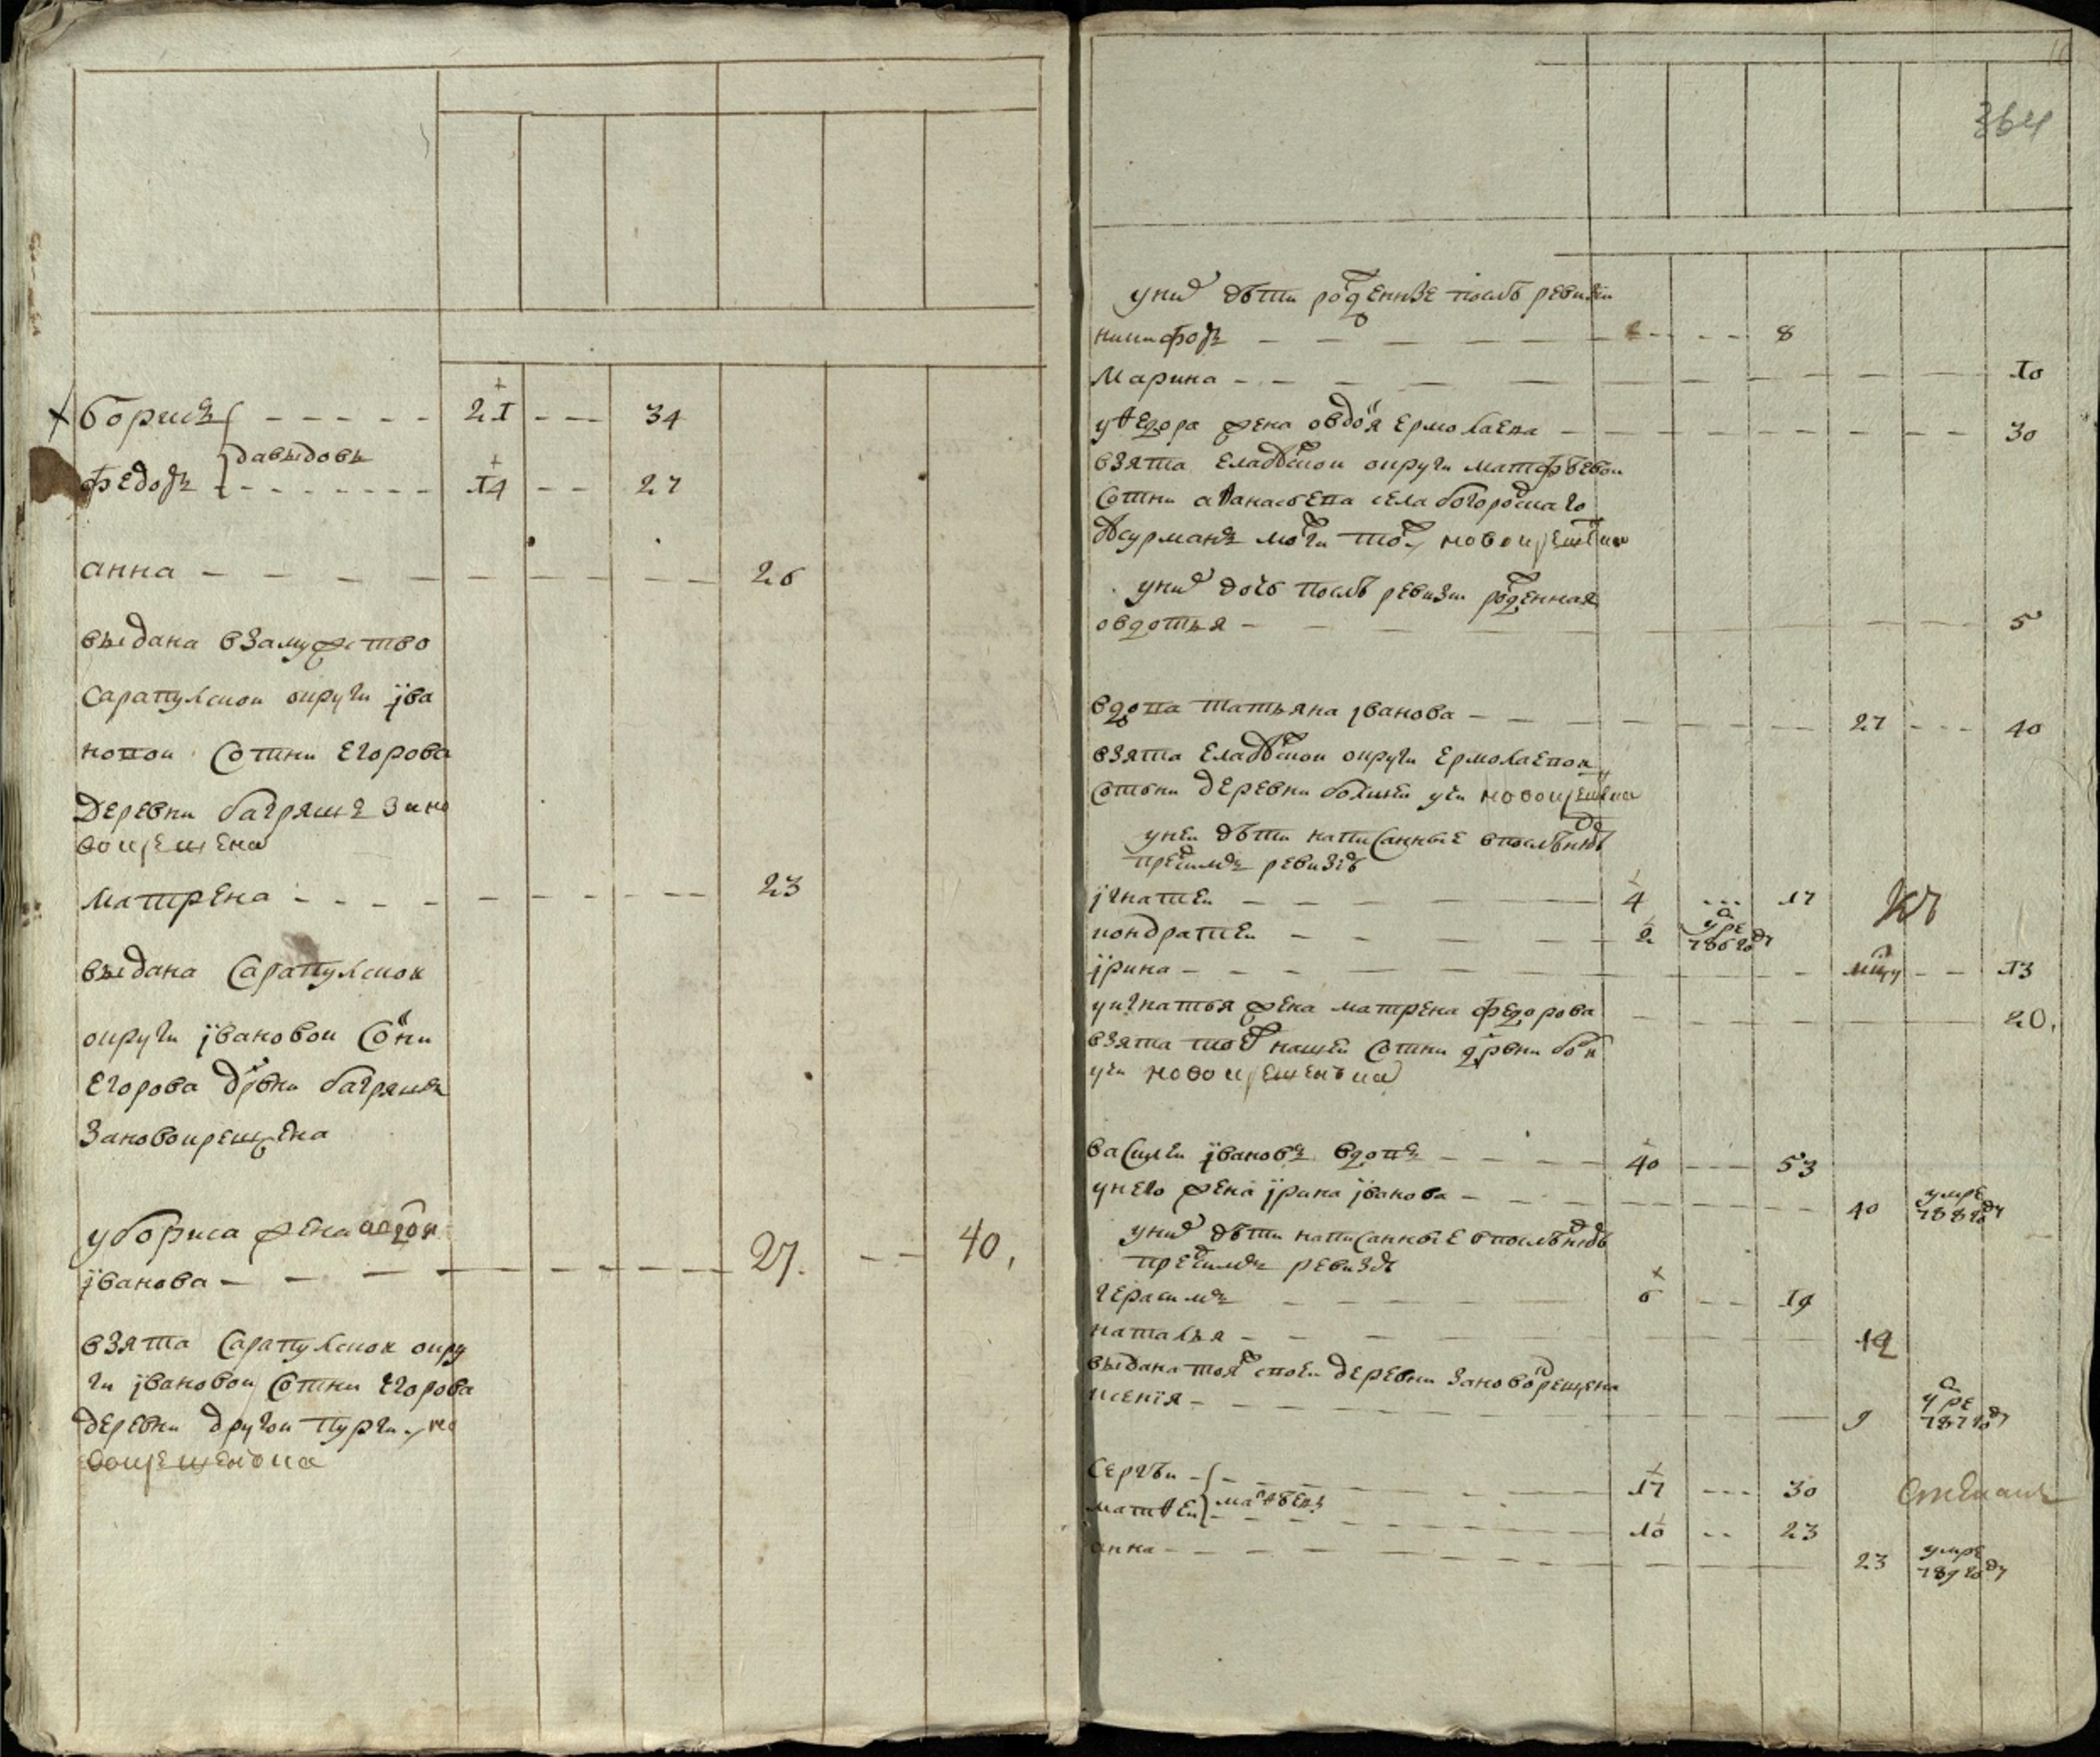 364
борисъ 21 --- 34
давыдовы
федоръ 14 -- 27
анна 26
выдана взамужство
сарапулскои округи їва
новои сотни егорова
деревни багряшъ за но
вокрещена
матрена 23
выдана сарапулскои
округи ївановои сотни
егорова дрвни багряшъ
зановокрещена
у бориса жена
їванова 27. -- 40.
взята сарапулскои окру
ги ївановои сотни егорова
деревни другои пурги но
вокрещенка
у них дѣти рожденные послѣ ревизїи
никифоръ --- 8
марина 10
у ѳедора жена овдотя ермолаева 30
взята елабускои округи матфѣевои
сотни аѳанасьева села богородцкаго
новокрещенка
у них дочь послѣ ревизи рожденная
овдотья 5
вдова татьяна їванова 27 --- 40
взята елабускои округи ермолаевои
сотьни деревни болшеи учи новокрещенка
у неи дѣти написанные в послѣднюю
пред симъ ревизїю
їгнатеи 4 --- 17
кондратеи 2 умре 786 году
їрина -- 13
у игнатья жена матрена федорова 20.
взята тои ж нашеи сотни дрвни бол
учи новокрещенька
васил
еи ївановъ вдовъ 40 --- 53
у него жена їрина їванова 40 умре 788 году
у них дѣти написанные в послѣднюю
пред симъ ревизю
герасимъ 6 -- 19
наталья 12
выдана тоя ж своеи деревни зановокрещена
ксенїя 9 умре 787 году
сергѣи 17 --- 30
матвѣевы
матѳеи 10 -- 23
анна 23 умре 789 году